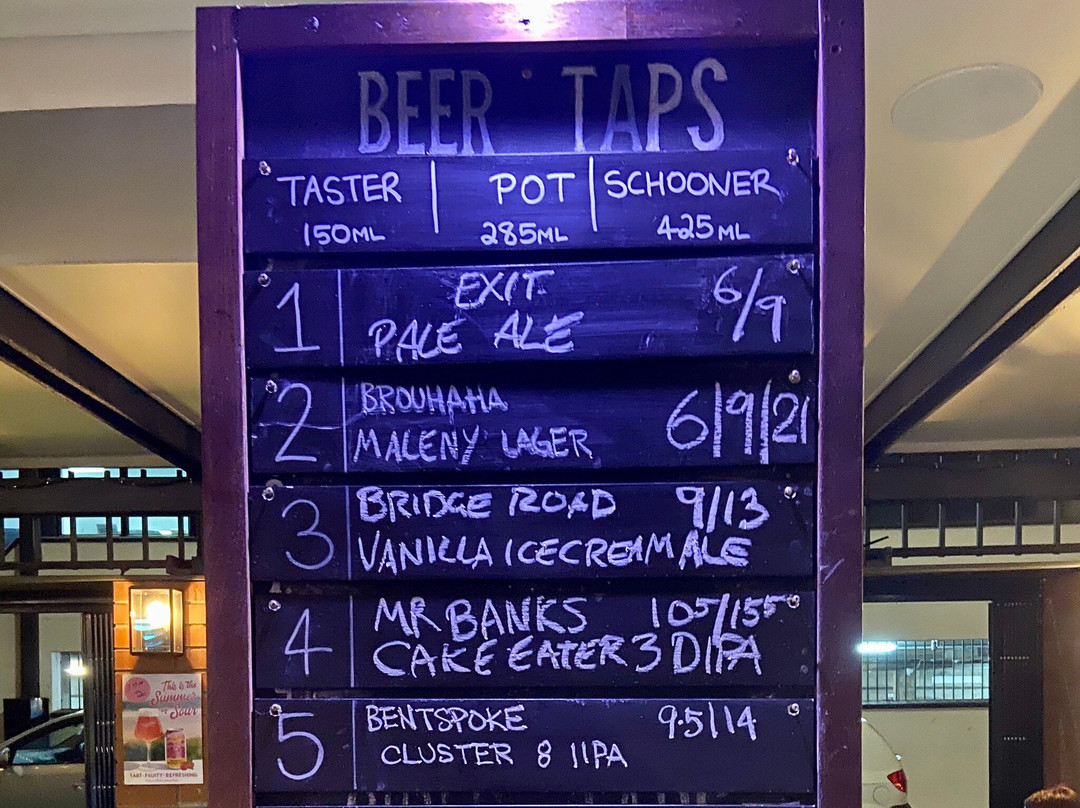 BEER TAPS
TASTER | POT | SCHOONER
150ML 285ML 425ML
1 EXIT 6/9
PALE ALE
2 BROUHAHA 6|9|21
MALENY LAGER
3 BRIDGE ROAD 9/13
VANILLA ICECREAM ALE
4 MR BANKS 105/155
CAKE EATER 3 DIPA
5 BENTSPOKE 9.5|14
CLUSTER 8 IIPA
This is the
Summer
of Sour
TART · FRUITY · REFRESHING